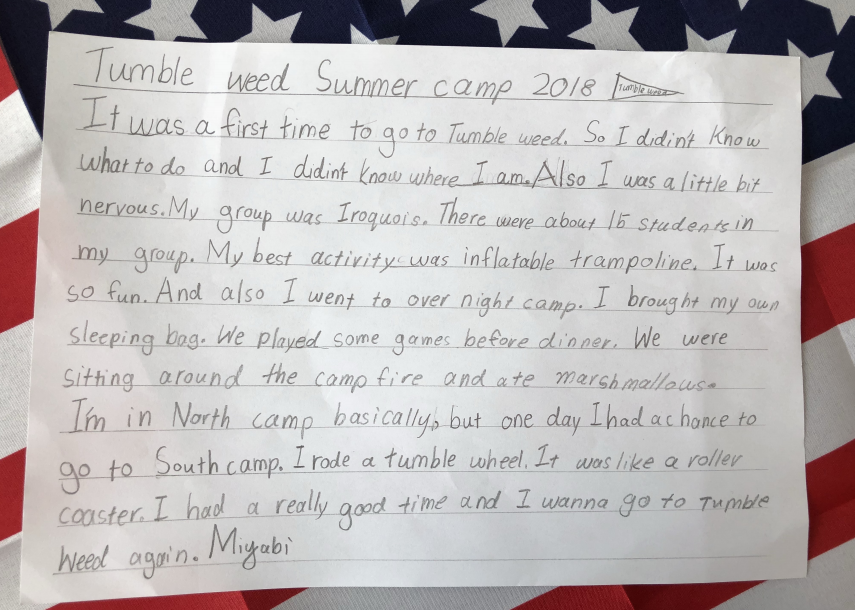 Tumble weed Summer camp 2018 Tumble weed
It was a first time to go to Tumble weed. So I didin't know
what to do and I didin't know where I am. Also I was a little bit
nervous. My group was Iroquois. There were about 15 students in
my group. My best activity was inflatable trampoline. It was
so fun. And also I went to over night camp. I brought my own
sleeping bag. We played some games before dinner. We were
sitting around the camp fire and ate marshmallows.
I'm in North camp basically, but one day I had a chance to
go to South camp. I rode a tumble wheel. It was like a roller
coaster. I had a really good time and I wanna go to Tumble
weed again. Miyabi